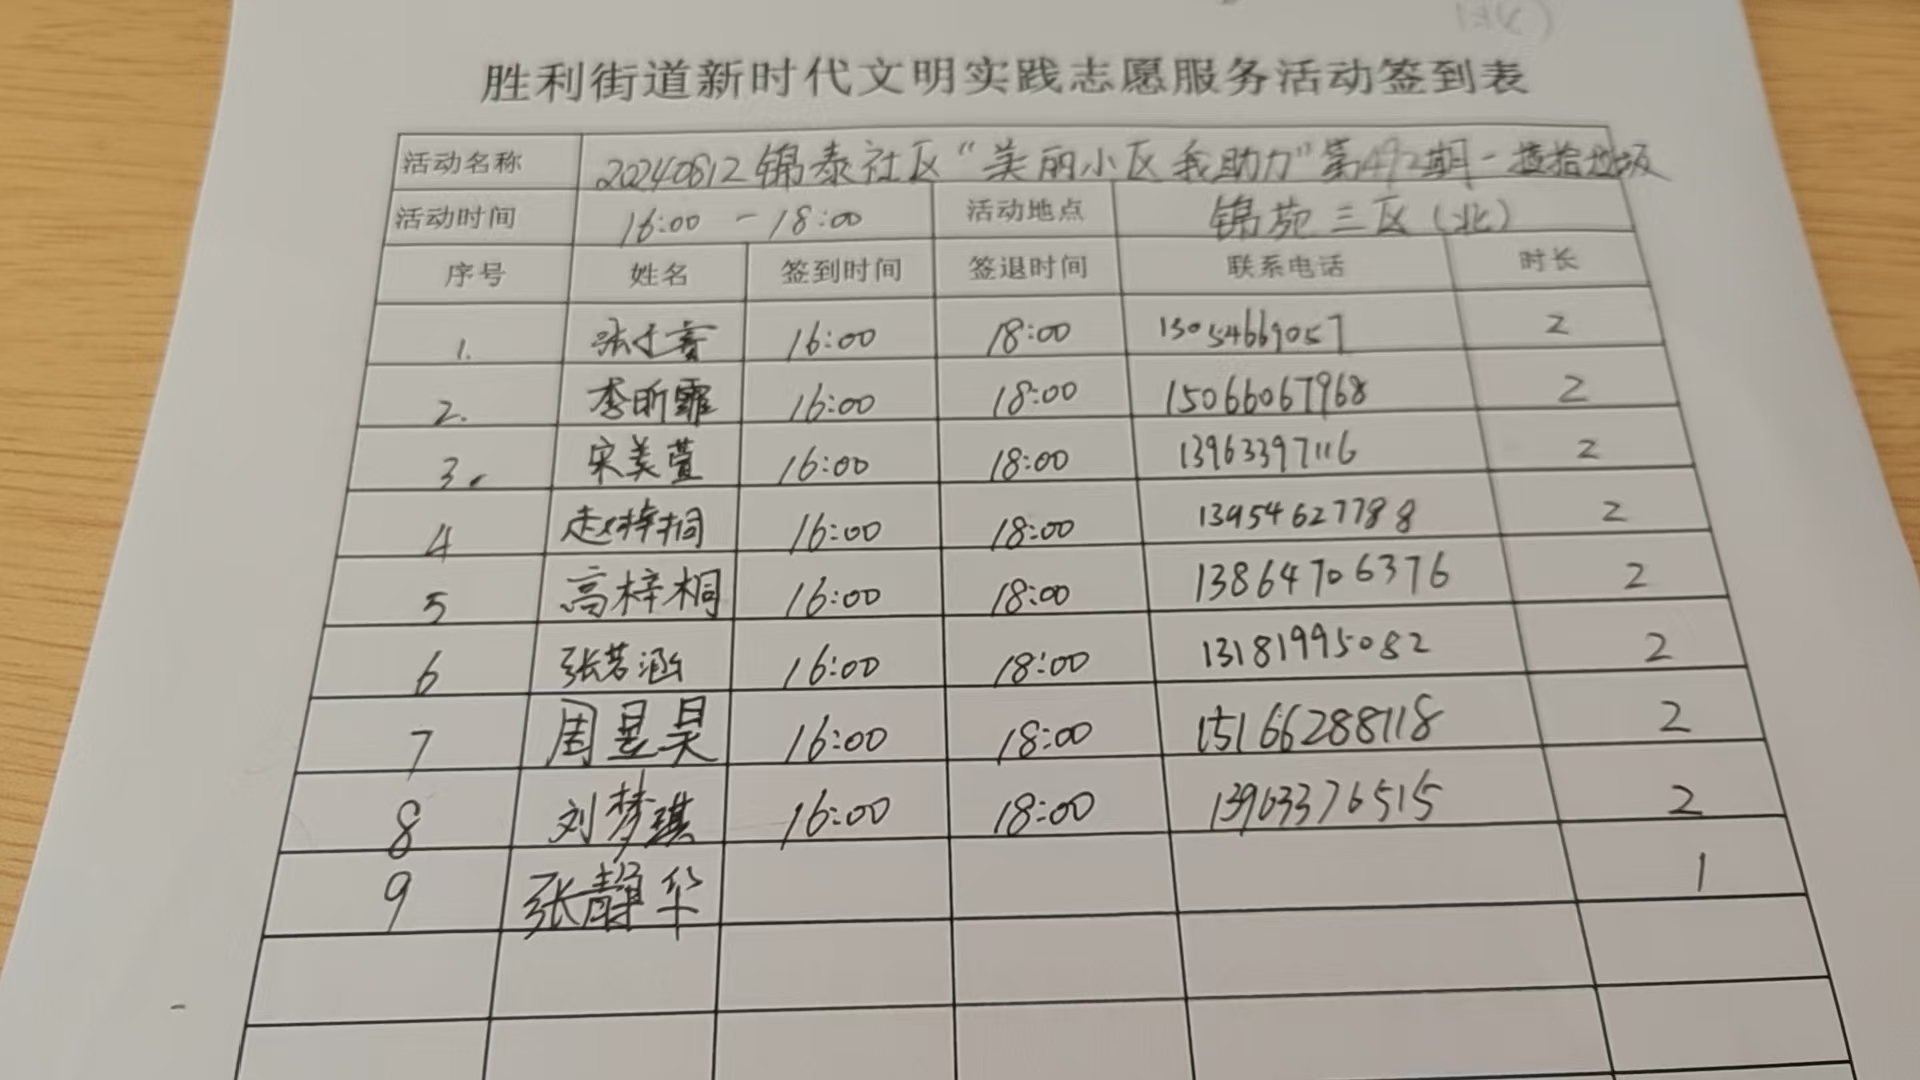 胜利街道新时代文明实践志愿服务活动签到表
活动名称 20240812锦泰社区“美丽小区我助力”第492期-捡拾垃圾
活动时间 16:00 - 18:00 活动地点 锦苑三区(北)
序号 姓名 签到时间 签退时间 联系电话 时长
1. 张 16:00 18:00 13054669057 2
2. 李昕霏 16:00 18:00 15066067968 2
3. 宋美萱 16:00 18:00 13963397116 2
4 赵梓桐 16:00 18:00 13954627788 2
5 高梓桐 16:00 18:00 13864706376 2
6 张若涵 16:00 18:00 13181995082 2
7 周昱昊 16:00 18:00 15166288118 2
8 刘梦琪 16:00 18:00 13963376515 2
9 张静华 1